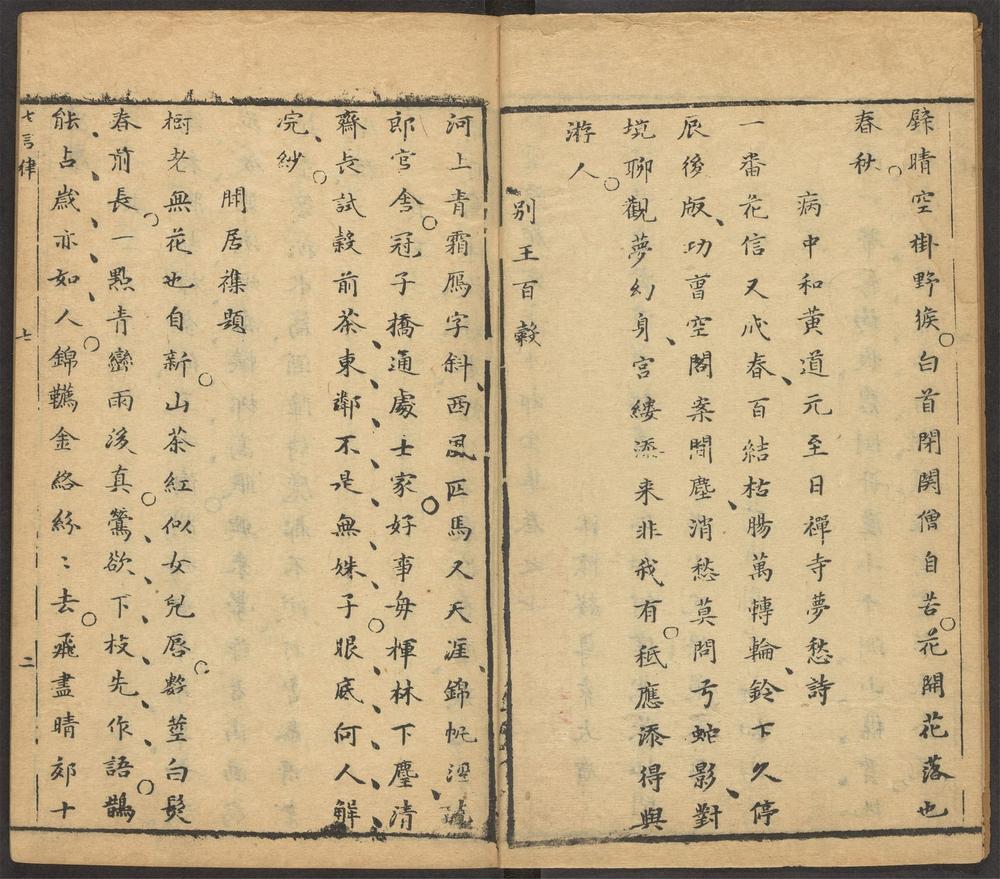 薜晴空掛野猴白首閉関僧自苦花開花落也
春秋
病中和黄道元至日禪寺夢愁詩
一番花信又心春百結枯腸萬轉輪鈴下久停
辰後版功曺空閣案間塵消愁莫問弓蛇影對
境聊觀夢幻身宫縷添来非我有秪應添得與
游人
别王百榖
河上青霜鴈字斜西風匹馬又天涯錦帆涇
郎官舍冠子橋通處士家好事毎揮林下麈清
齋長試榖前茶東鄰不是無姝子眼底何人解
完紗
閒居襍題
樹老無花也自新山茶紅似女兒唇數莖白髮
春前長一點青巒雨後真鶯欲下枝先作語鵲
能占歲亦如人錦韉金絡紛〻去飛盡晴郊十
七言律
七
二